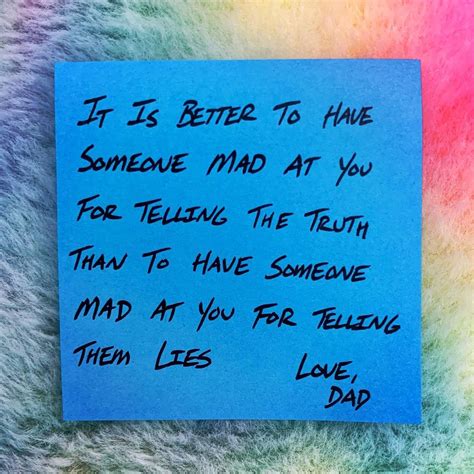 It Is Better To Have
Someone Mad At You
For Telling The Truth
Than To Have Someone
Mad At You For Telling
Them Lies
Love,
Dad